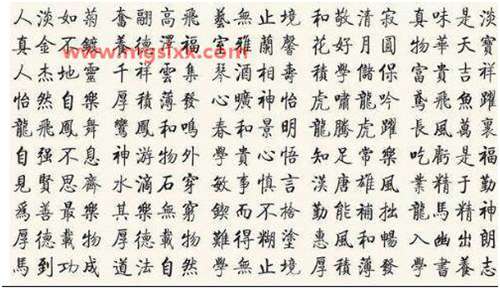 人淡如菊 奮翩高飛 藝無止境 和敬清寂 真味是淡
真金不鍍 養德澤福 室雅蘭馨 花好月圓 物華天寶
www.mgslxx.com
人杰地靈 千祥雲集 琴酒相壽 學儲保 富貴吉祥
怡然自樂 厚積薄發 心曠神怡 虎嘯龍吟 鳶飛魚躍
龍飛鳳舞 鸞鳳和鳴 春和景明 龍騰虎躍 長風萬裏
自强不息 神游物外 學貴心悟 知足常樂 吃虧是福
見賢思齊 水滴石穿 敏事慎言 漢唐雄風 業精于勤
爲善最樂 其樂無窮 鍥而不捨 勤能補拙 龍馬精神
厚德載物 厚德載物 難得糊塗 惠風和暢 入幽出朗
馬到功成 道法自然 學無止境 厚積薄發 學書養志